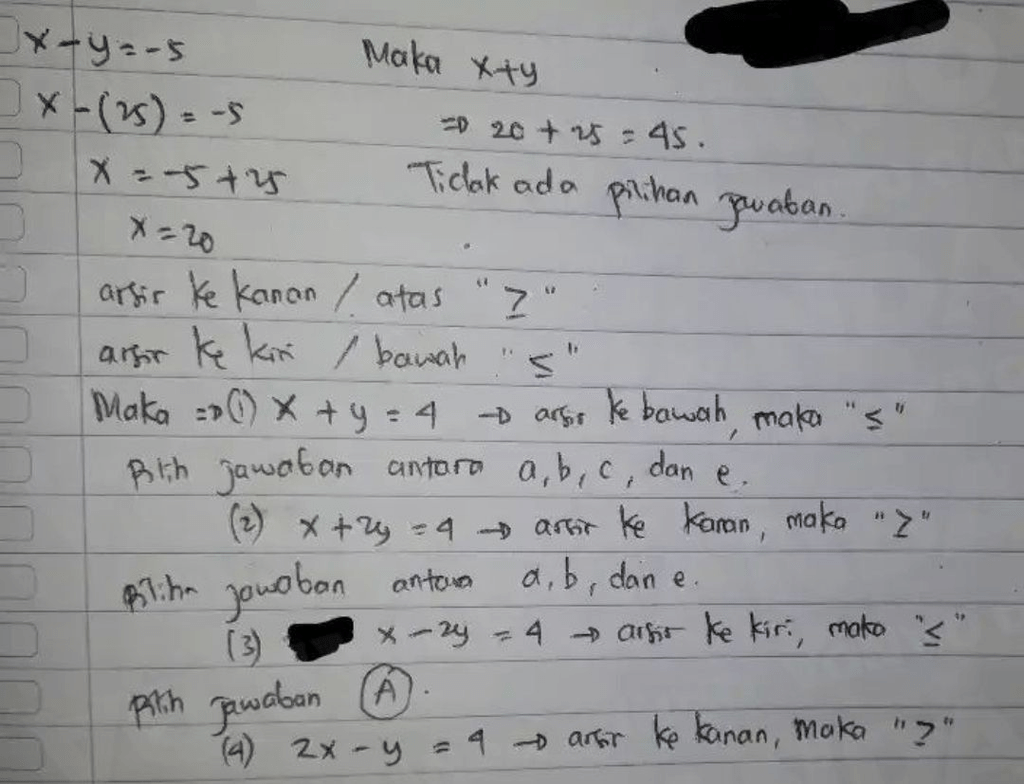 x - y = -5
Maka x+y
x - (25) = -5
=> 20 + 25 = 45.
x = -5 + 25
Tidak ada pilihan jawaban.
x = 20
arsir ke kanan / atas "≥"
arsir ke kiri / bawah "≤"
Maka => (1) x + y = 4 → arsir ke bawah, maka "≤"
Pilih jawaban antara a, b, c, dan e.
(2) x + 2y = 4 → arsir ke kanan, maka "≥"
pilihn jawaban antara a, b, dan e.
(3) x - 2y = 4 → arsir ke kiri, maka "≤"
pilih jawaban (A).
(4) 2x - y = 4 → arsir ke kanan, maka "≥"